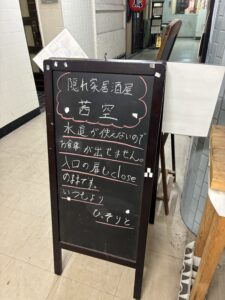 隠れ家居酒屋
茜空
水道が使えないので
お食事が出せません。
入口の扉もclose
のままです。
いつもより
ひっそりと